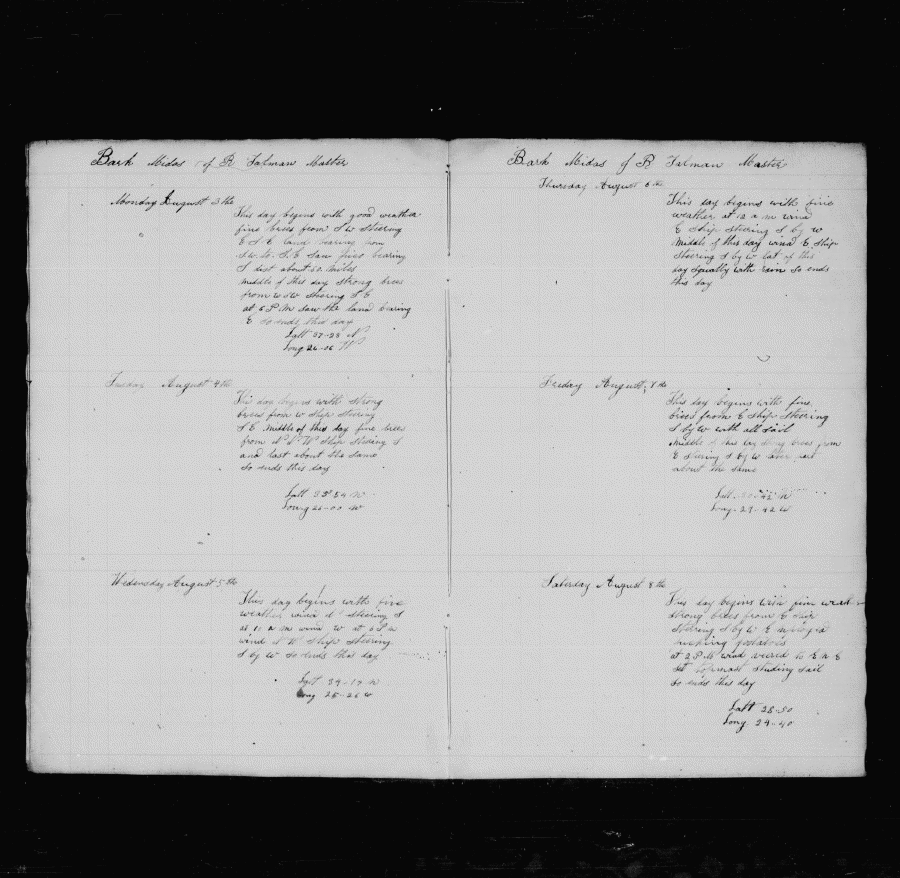 Bark Midas of R Talman Master
Monday August 3 the
This day begins with good weather
fine brees from S W Steering
E S E land bearing from
S W to S E Saw fires bearing
S dist about 60 Miles
Middle of this day strong brees
from W S W Steering S E
at 6 P M saw the land bearing
E So ends this day
Latt 37-28 N
Long 26-06 W
Tuesday August 4 the
This day begins with strong
brees from W Ship Steering
S E Middle of this day fine brees
from N N W Ship Steering S
and last about the same
So ends this day
Latt 35 54 N
Long 26-00 W
Wednesday August 5 the
This day begins with fine
weather wind N Steering S
at 10 a M wind W at 6 P M
wind N W Ship Steering
S by W So ends this day
Latt 34-17 N
Long 26-26 W
Bark Midas of R Talman Master
Thursday August 6 the
This day begins with fine
weather at 12 a m wind
E Ship Steering S by W
Middle of this day wind E Ship
Steering S by W lat of this
day Squally with rain So ends
this day
Friday August 7 the
This day begins with fine
brees from E Ship Steering
S by W with all Sail
Middle of this day Strong brees from
E Steering S by W later part
about the same
Latt 30-42 N
Long 29-42 W
Saterday August 8 the
This day begins with fine weath
strong brees from E Ship
Steering S by W E
at 2 P M wind veered to E N E
Set topmast studing sail
So ends this day
Latt 28-50
Long 29-40